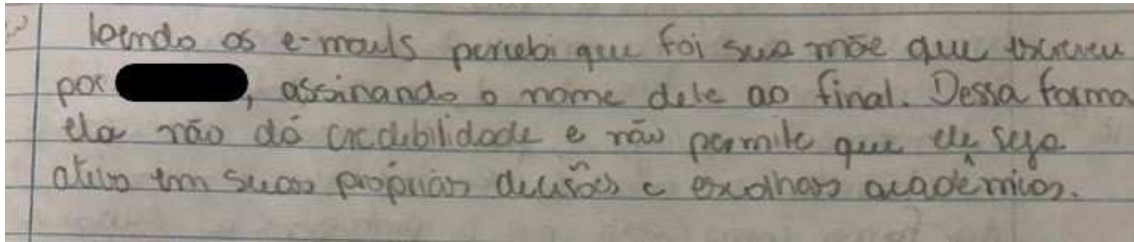 lendo os e-mails percebi que foi sua mãe que escreveu
por , assinando o nome dele ao final. Dessa forma
ela não dá credebilidade e não permite que ele seja
ativo em suas próprias decisões e escolhas acadêmicas.